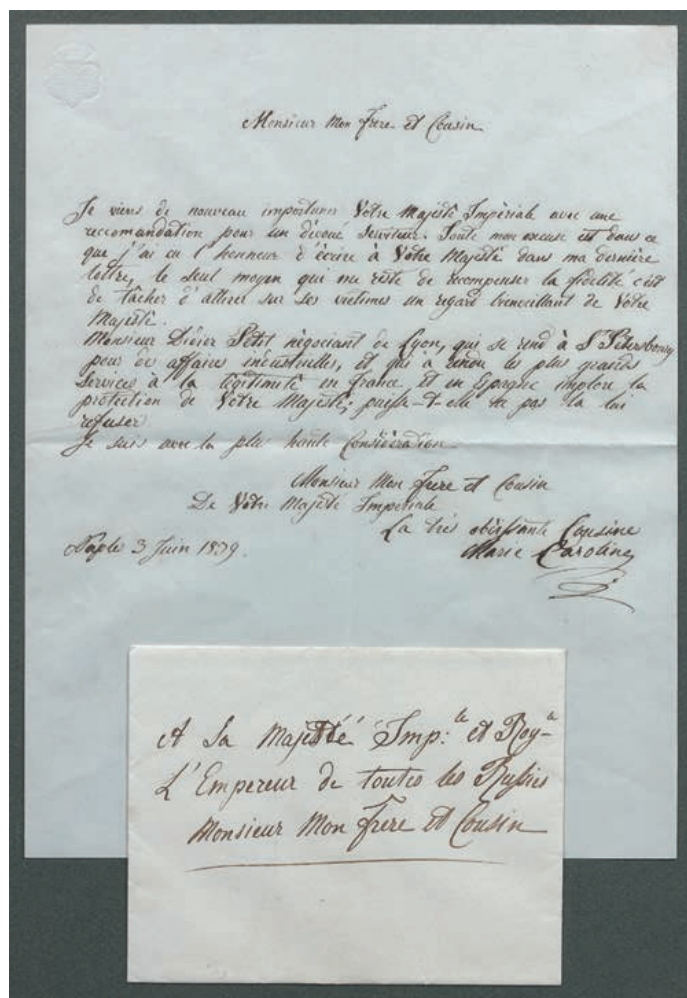 Monsieur Mon Frere et Cousin
Je viens de nouveau importuner Votre Majesté Impériale avec une
reccomandation pour un dévoué serviteur. Toute mon excuse est dans ce
que j'ai eu l'honneur d'écrire à Votre Majesté dans ma dernière
lettre, le seul moyen qui me reste de recompenser la fidélité c'est
de tâcher d'attirer sur ses victimes un regard bienveillant de Votre
Majesté.
Monsieur Didier Petit négociant de Lyon, qui se rend à St Petersbourg
pour de affaires industrielles, et qui a rendu les plus grands
Services à la légitimité en france, et en Espagne implore la
protection de Votre Majesté; puisse-t-elle ne pas la lui
refuser
Je suis avec la plus haute Considération
Monsieur Mon Frere et Cousin
De Votre Majesté Impériale
La très obéissante Cousine
Marie Caroline
Naple 3 Juin 1839.
A Sa Majesté Imp:le et Roy-le
L'Empereur de toutes les Russies
Monsieur Mon Frere et Cousin